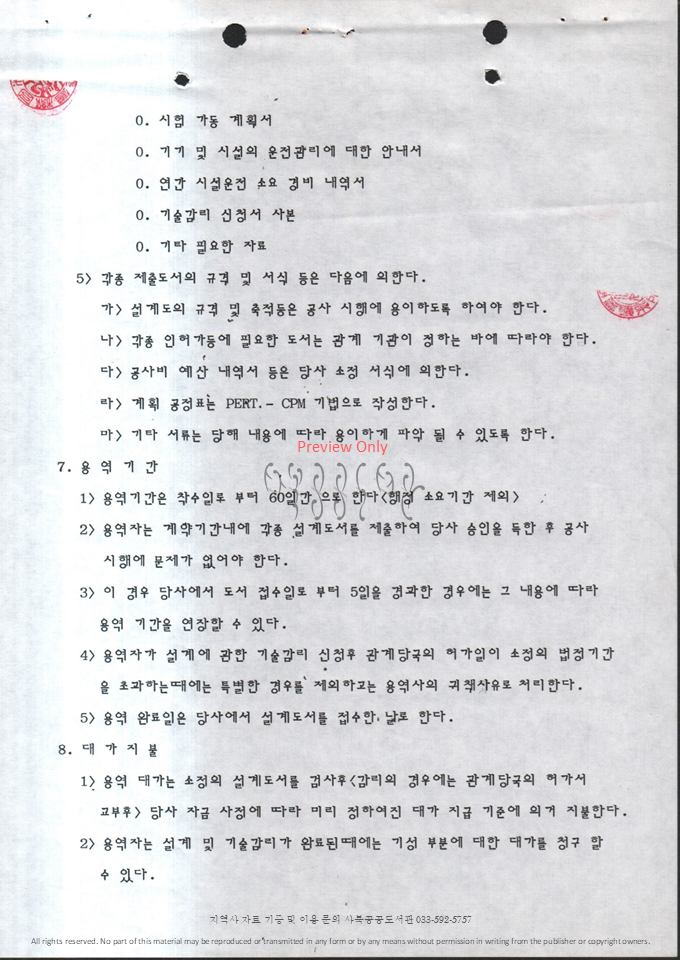 0. 시험 가동 계획서
0. 기기 및 시설의 운전관리에 대한 안내서
0. 연간 시설운전 소요 경비 내역서
0. 기술감리 신청서 사본
0. 기타 필요한 자료
5> 각종 제출도서의 규격 및 서식 등은 다음에 의한다.
가> 설계도의 규격 및 축적등은 공사 시행에 용이하도록 하여야 한다.
나> 각종 인허가등에 필요한 도서는 관계 기관이 정하는 바에 따라야 한다.
다> 공사비 예산 내역서 등은 당사 소정 서식에 의한다.
라> 계획 공정표는 PERT.- CPM 기법으로 작성한다.
마> 기타 서류는 당해 내용에 따라 용이하게 파악 될 수 있도록 한다.
Preview Only
7. 용 역 기 간
1> 용역기간은 착수일로 부터 60일간 으로 한다<행정 소요기간 제외>
2> 용역자는 계약기간내에 각종 설계도서를 제출하여 당사 승인을 득한 후 공사
시행에 문제가 없어야 한다.
3> 이 경우 당사에서 도서 접수일로 부터 5일을 경과한 경우에는 그 내용에 따라
용역 기간을 연장할 수 있다.
4> 용역자가 설계에 관한 기술감리 신청후 관계당국의 허가일이 소정의 법정기간
을 초과하는때에는 특별한 경우를 제외하고는 용역사의 귀책사유로 처리한다.
5> 용역 완료일은 당사에서 설계도서를 접수한 날로 한다.
8. 대 가 지 불
1> 용역 대가는 소정의 설계도서를 검사후<감리의 경우에는 관계당국의 허가서
교부후> 당사 자금 사정에 따라 미리 정하여진 대가 지급 기준에 의거 지불한다.
2> 용역자는 설계 및 기술감리가 완료된때에는 기성 부분에 대한 대가를 청구 할
수 있다.
지역사 자료 기증 및 이용 문의 사북공공도서관 033-592-5757
All rights reserved. No part of this material may be reproduced or transmitted in any form or by any means without permission in writing from the publisher or copyright owners.